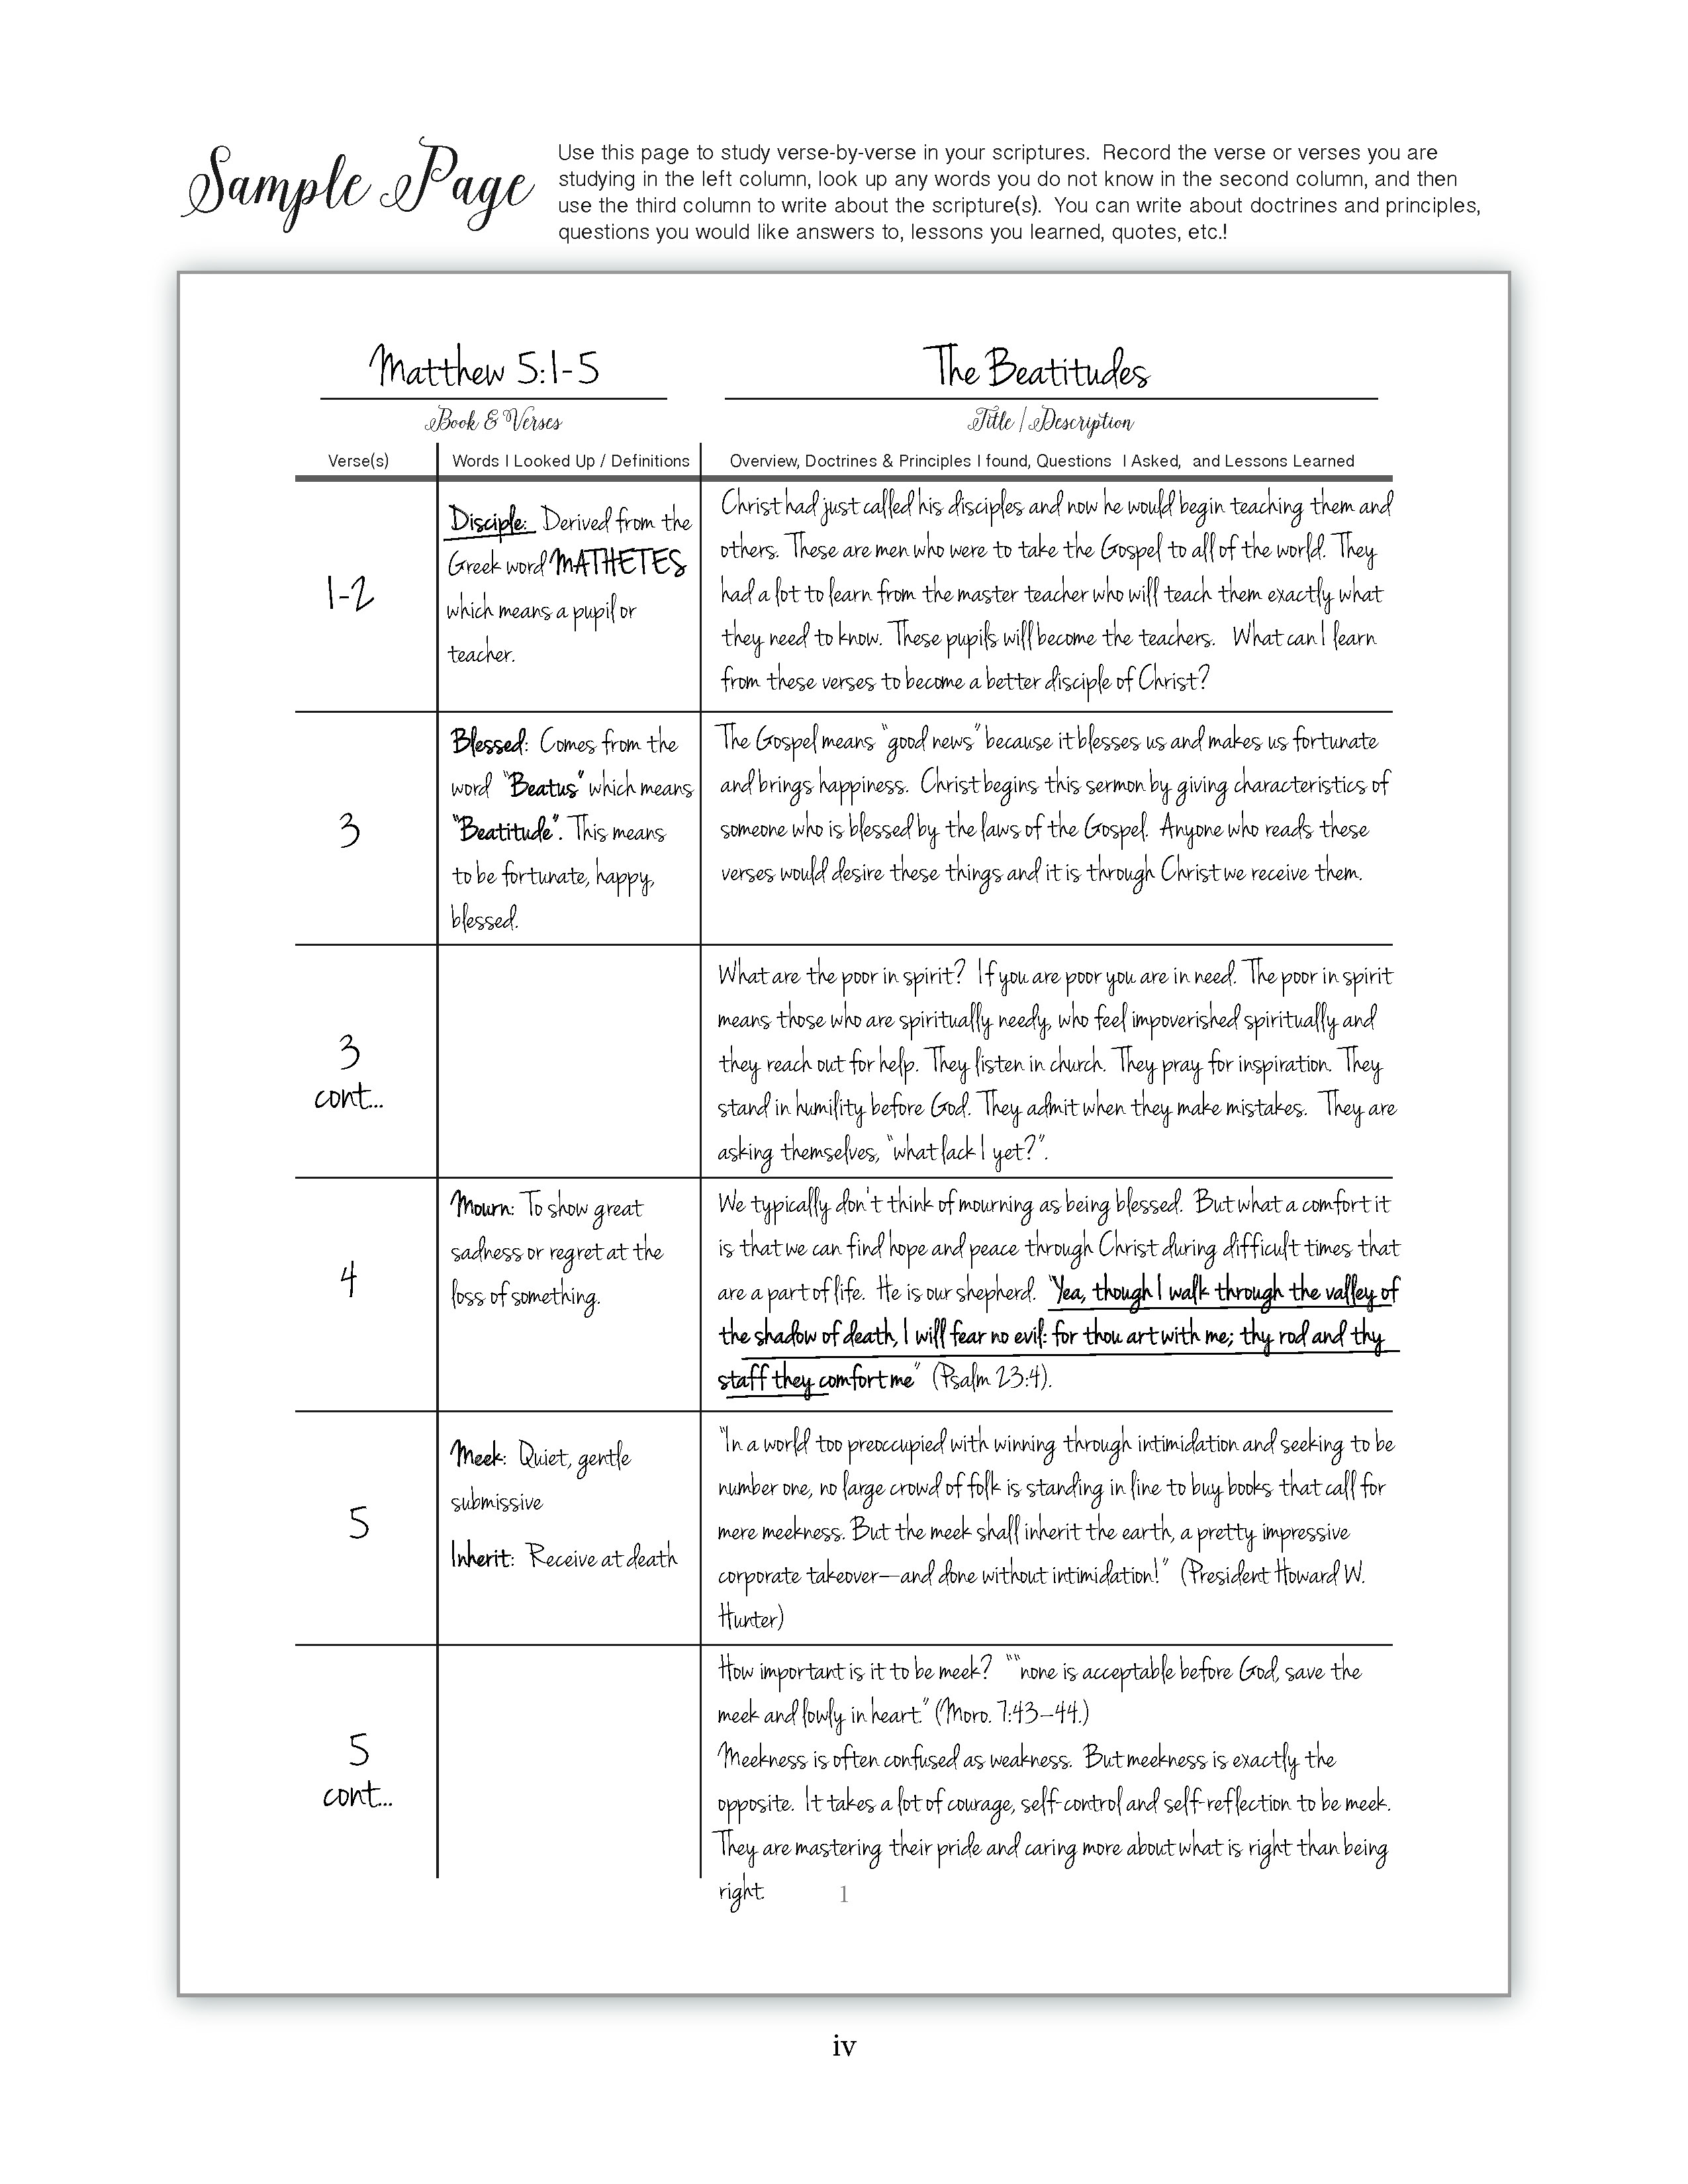 Sample Page
Use this page to study verse-by-verse in your scriptures. Record the verse or verses you are
studying in the left column, look up any words you do not know in the second column, and then
use the third column to write about the scripture(s). You can write about doctrines and principles,
questions you would like answers to, lessons you learned, quotes, etc.!
Matthew 5:1-5
The Beatitudes
Book & Verses
Title / Description
Verse(s)
Words I Looked Up / Definitions
Overview, Doctrines & Principles I found, Questions I Asked, and Lessons Learned
1-2
Disciple: Derived from the
Greek word MATHETES
which means a pupil or
teacher.
Christ had just called his disciples and now he would begin teaching them and
others. These are men who were to take the Gospel to all of the world. They
had a lot to learn from the master teacher who will teach them exactly what
they need to know. These pupils will become the teachers. What can I learn
from these verses to become a better disciple of Christ?
3
Blessed: Comes from the
word "Beatus" which means
"Beatitude". This means
to be fortunate, happy,
blessed.
The Gospel means "good news" because it blesses us and makes us fortunate
and brings happiness. Christ begins this sermon by giving characteristics of
someone who is blessed by the laws of the Gospel. Anyone who reads these
verses would desire these things and it is through Christ we receive them.
3
cont...
What are the poor in spirit? If you are poor you are in need. The poor in spirit
means those who are spiritually needy, who feel impoverished spiritually and
they reach out for help. They listen in church. They pray for inspiration. They
stand in humility before God. They admit when they make mistakes. They are
asking themselves, "what lack I yet?".
4
Mourn: To show great
sadness or regret at the
loss of something.
We typically don't think of mourning as being blessed. But what a comfort it
is that we can find hope and peace through Christ during difficult times that
are a part of life. He is our shepherd. "Yea, though I walk through the valley of
the shadow of death, I will fear no evil: for thou art with me; thy rod and thy
staff they comfort me" (Psalm 23:4).
5
Meek: Quiet, gentle
submissive
Inherit: Receive at death
"In a world too preoccupied with winning through intimidation and seeking to be
number one, no large crowd of folk is standing in line to buy books that call for
mere meekness. But the meek shall inherit the earth, a pretty impressive
corporate takeover—and done without intimidation!" (President Howard W.
Hunter)
5
cont...
How important is it to be meek? ""none is acceptable before God, save the
meek and lowly in heart." (Moro. 7:43–44.)
Meekness is often confused as weakness. But meekness is exactly the
opposite. It takes a lot of courage, self-control and self-reflection to be meek.
They are mastering their pride and caring more about what is right than being
right.
1
iv